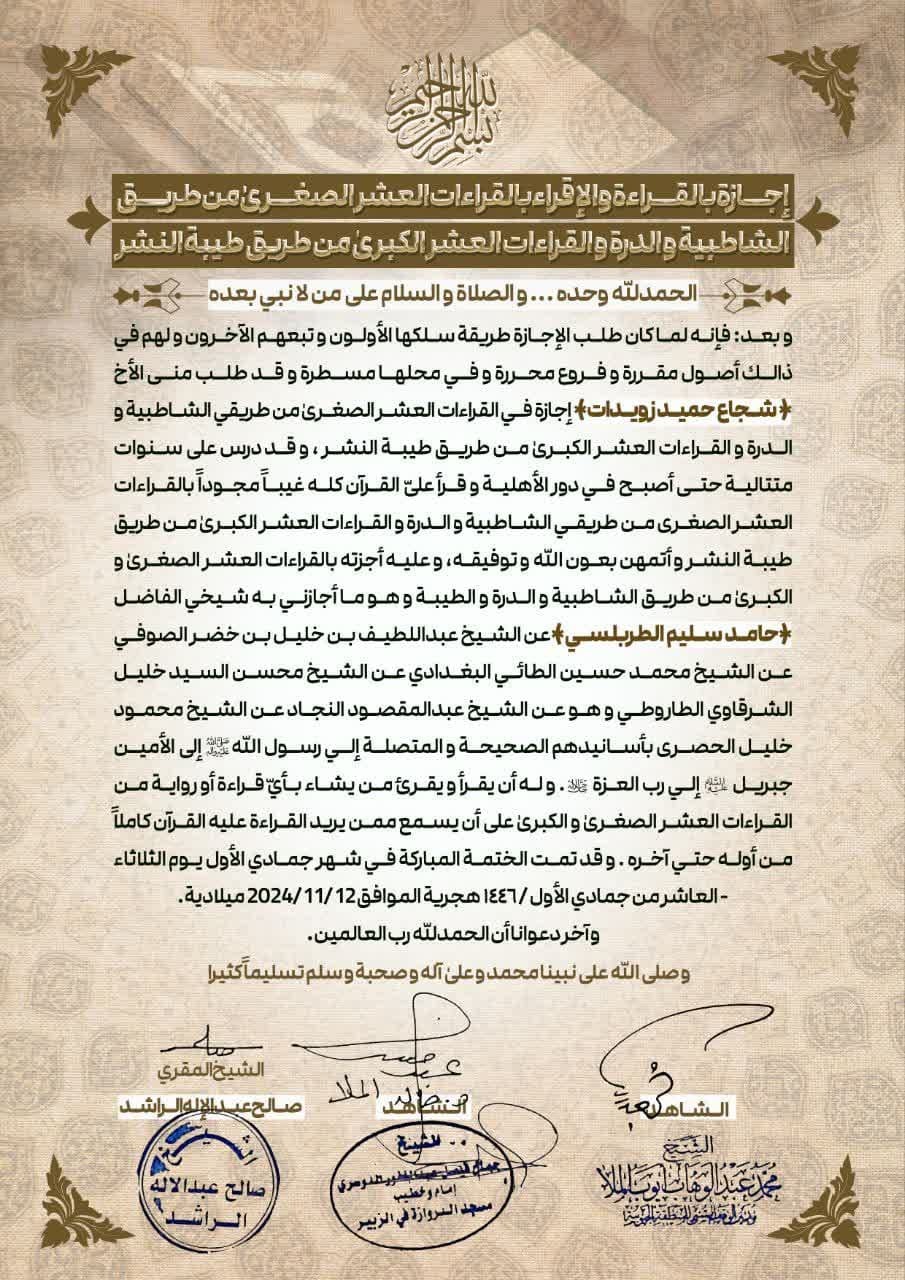 بسم الله الرحمن الرحيم
إجازة بالقراءة والإقراء بالقراءات العشر الصغرىٰ من طريق
الشاطبية و الدرة و القراءات العشر الكبرىٰ من طريق طيبة النشر
الحمدلله وحده ... و الصلاة و السلام على من لا نبي بعده
و بعد: فإنه لما كان طلب الإجازة طريقة سلكها الأولون و تبعهم الآخرون و لهم في
ذالك أصول مقررة و فروع محررة و في محلها مسطرة و قد طلب منى الأخ
﴿شجاع حميد زويدات﴾ إجازة في القراءات العشر الصغرىٰ من طريقي الشاطبية و
الدرة و القراءات العشر الكبرىٰ من طريق طيبة النشر ، و قد درس على سنوات
متتالية حتى أصبح في دور الأهلية و قرأ عليّ القرآن كله غيباً مجوداً بالقراءات
العشر الصغرى من طريقي الشاطبية و الدرة و القراءات العشر الكبرىٰ من طريق
طيبة النشر و أتمهن بعون الله و توفيقه، و عليه أجزته بالقراءات العشر الصغرىٰ و
الكبرىٰ من طريق الشاطبية و الدرة و الطيبة و هو ما أجازني به شيخي الفاضل
﴿حامد سليم الطربلسي﴾ عن الشيخ عبداللطيف بن خليل بن خضر الصوفي
عن الشيخ محمد حسين الطائي البغدادي عن الشيخ محسن السيد خليل
الشرقاوي الطاروطي و هو عن الشيخ عبدالمقصود النجاد عن الشيخ محمود
خليل الحصرى بأسانيدهم الصحيحة و المتصلة إلي رسول الله ﷺ إلى الأمين
جبريل عليه السلام إلي رب العزة ﷻ . و له أن يقرأ و يقرئ من يشاء بأيّ قراءة أو رواية من
القراءات العشر الصغرىٰ و الكبرىٰ على أن يسمع ممن يريد القراءة عليه القرآن كاملاً
من أوله حتي آخره . و قد تمت الختمة المباركة في شهر جمادي الأول يوم الثلاثاء
- العاشر من جمادي الأول / ١٤٤٦ هجرية الموافق 12 /11 /2024 ميلادية.
وآخر دعوانا أن الحمدلله رب العالمين.
وصلى الله على نبينا محمد وعلىٰ آله وصحبة وسلم تسليماً كثيرا
الشيخ المقري
صالح عبدالإله الراشد
الشاهد
الشاهد
الشيخ
صالح عبدالاله
الراشد
الشيخ
إمام و خطيب
مسجد الدروازة في الزبير
الشيخ
محمد عبد الوهاب